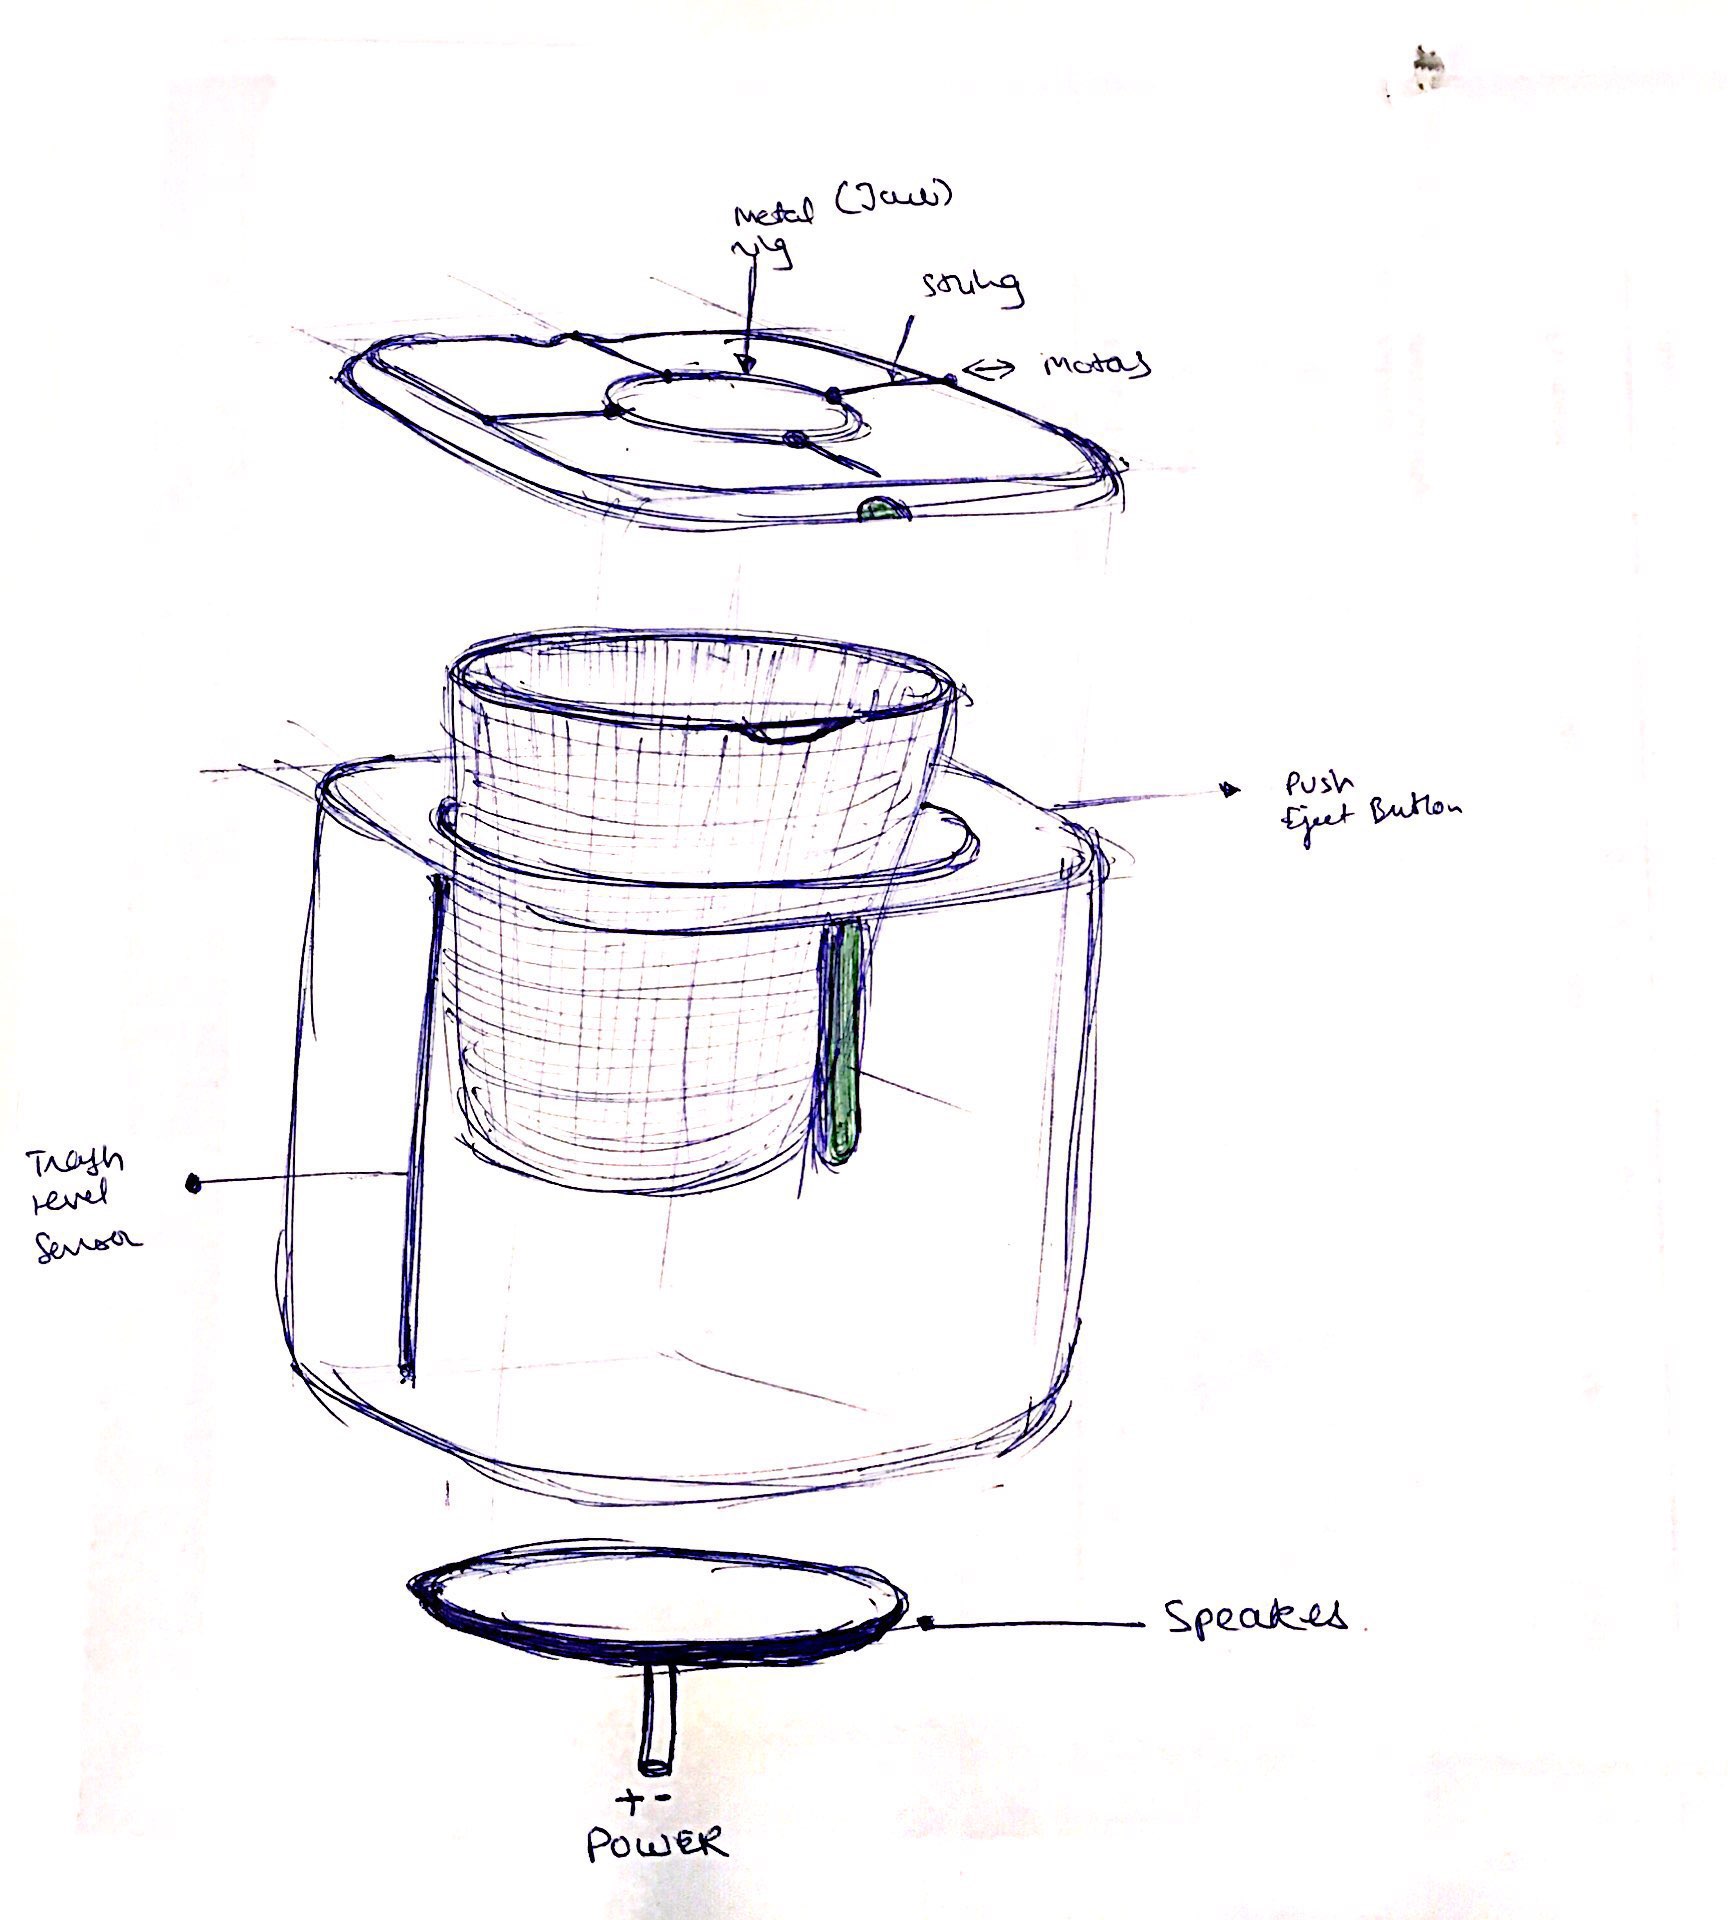 Metal (Jaw)
rig
string
Motors
Push
Eject Button
Trash
Level
Sensor
Speaker
+ -
POWER